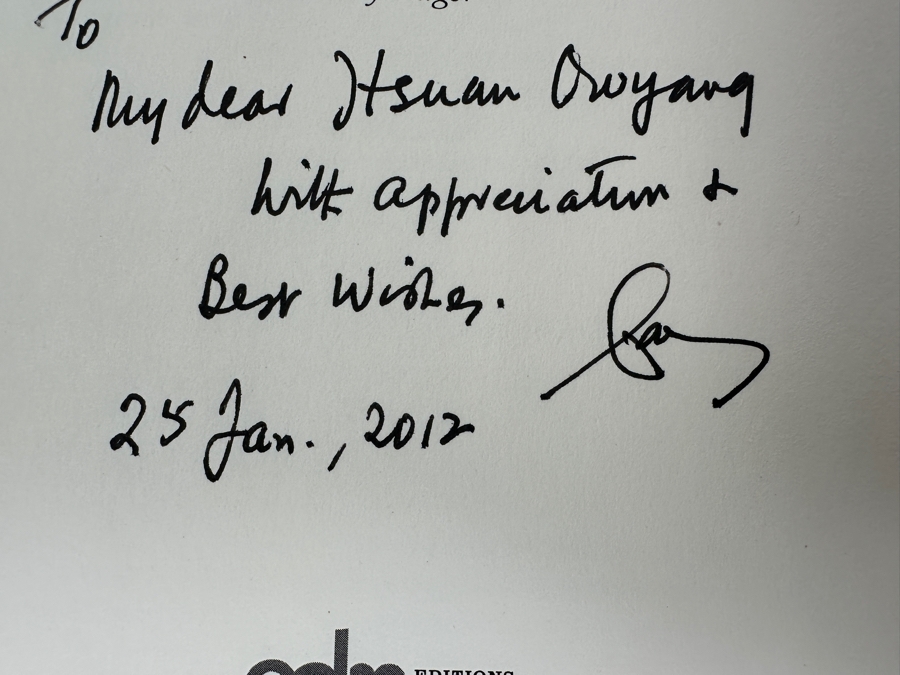 To
My dear Hsuan Owyang
with appreciation &
Best Wishes.
25 Jan., 2012
EDITIONS